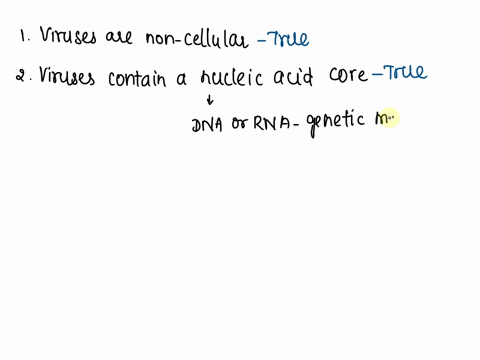 1. Viruses are non-cellular - True
2. Viruses contain a nucleic acid core - True
↓
DNA or RNA - genetic